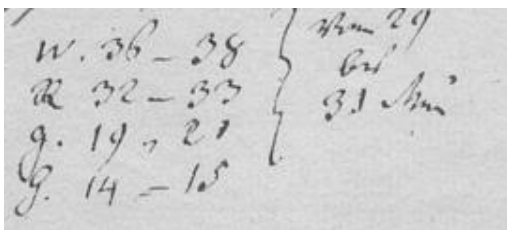 W. 36 – 38
R 32 – 33
g. 19 „ 21
H. 14 – 15
Vom 29
bis
31 Mai